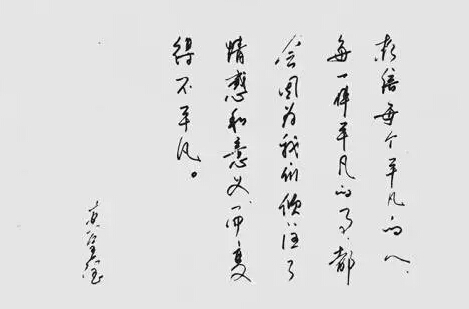 相信每个平凡的人
每一件平凡的事，都
会因为我们倾注了
情感和意义而变
得不平凡。